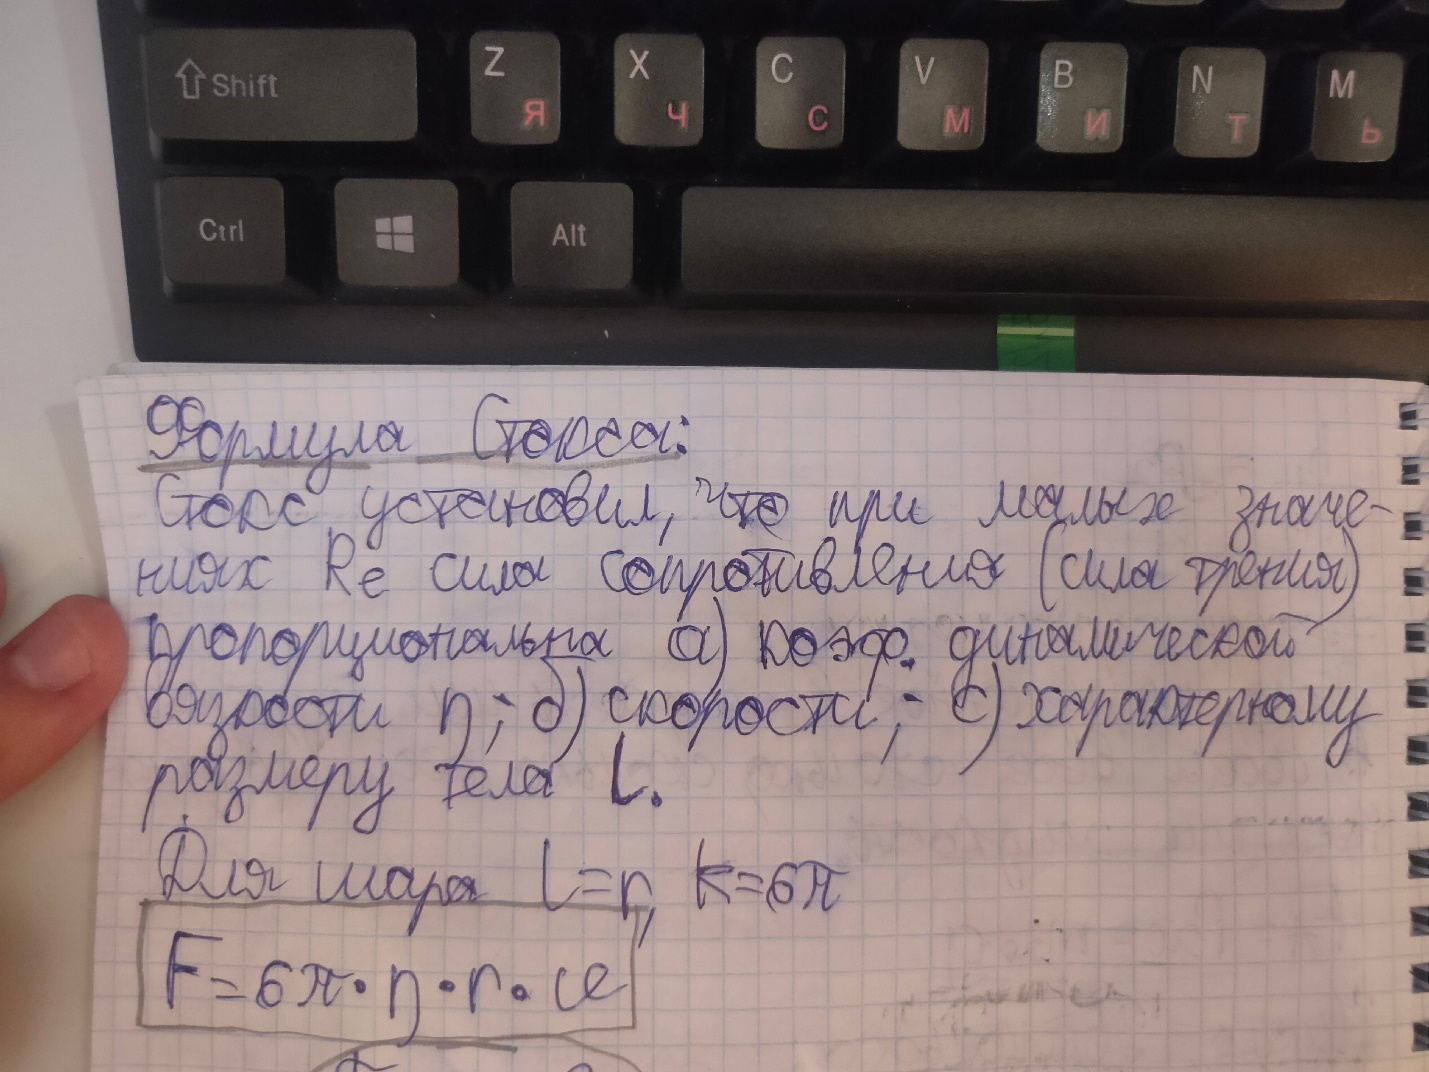 Z X C V B N M
⇧Shift Я Ч С М И Т Ь
Ctrl Alt
Формула Стокса:
Стокс установил, что при малых значе-
ниях Re сила сопротивления (сила трения)
пропорциональна а) коэф. динамической
вязкости η; б) скорости; с) характерному
размеру тела L.
Для шара l=r, k=6π
F=6π·η·r·